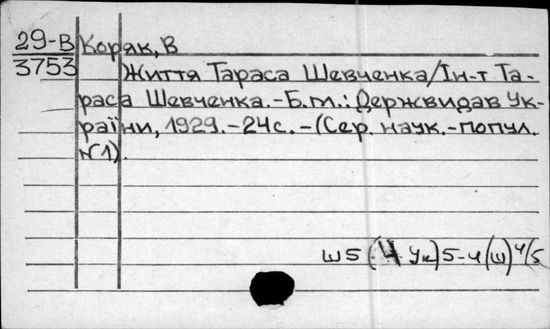 29-В Коряк, В
3753
Життя Тараса Шевченка/Ін-т Та-
раса Шевченка.-Б.м.: Держвидав Ук-
раїни, 1929.-24с.-(Сер. наук.-попул.
№1).
Ш5(4Ук)5-4(Ш)4/5